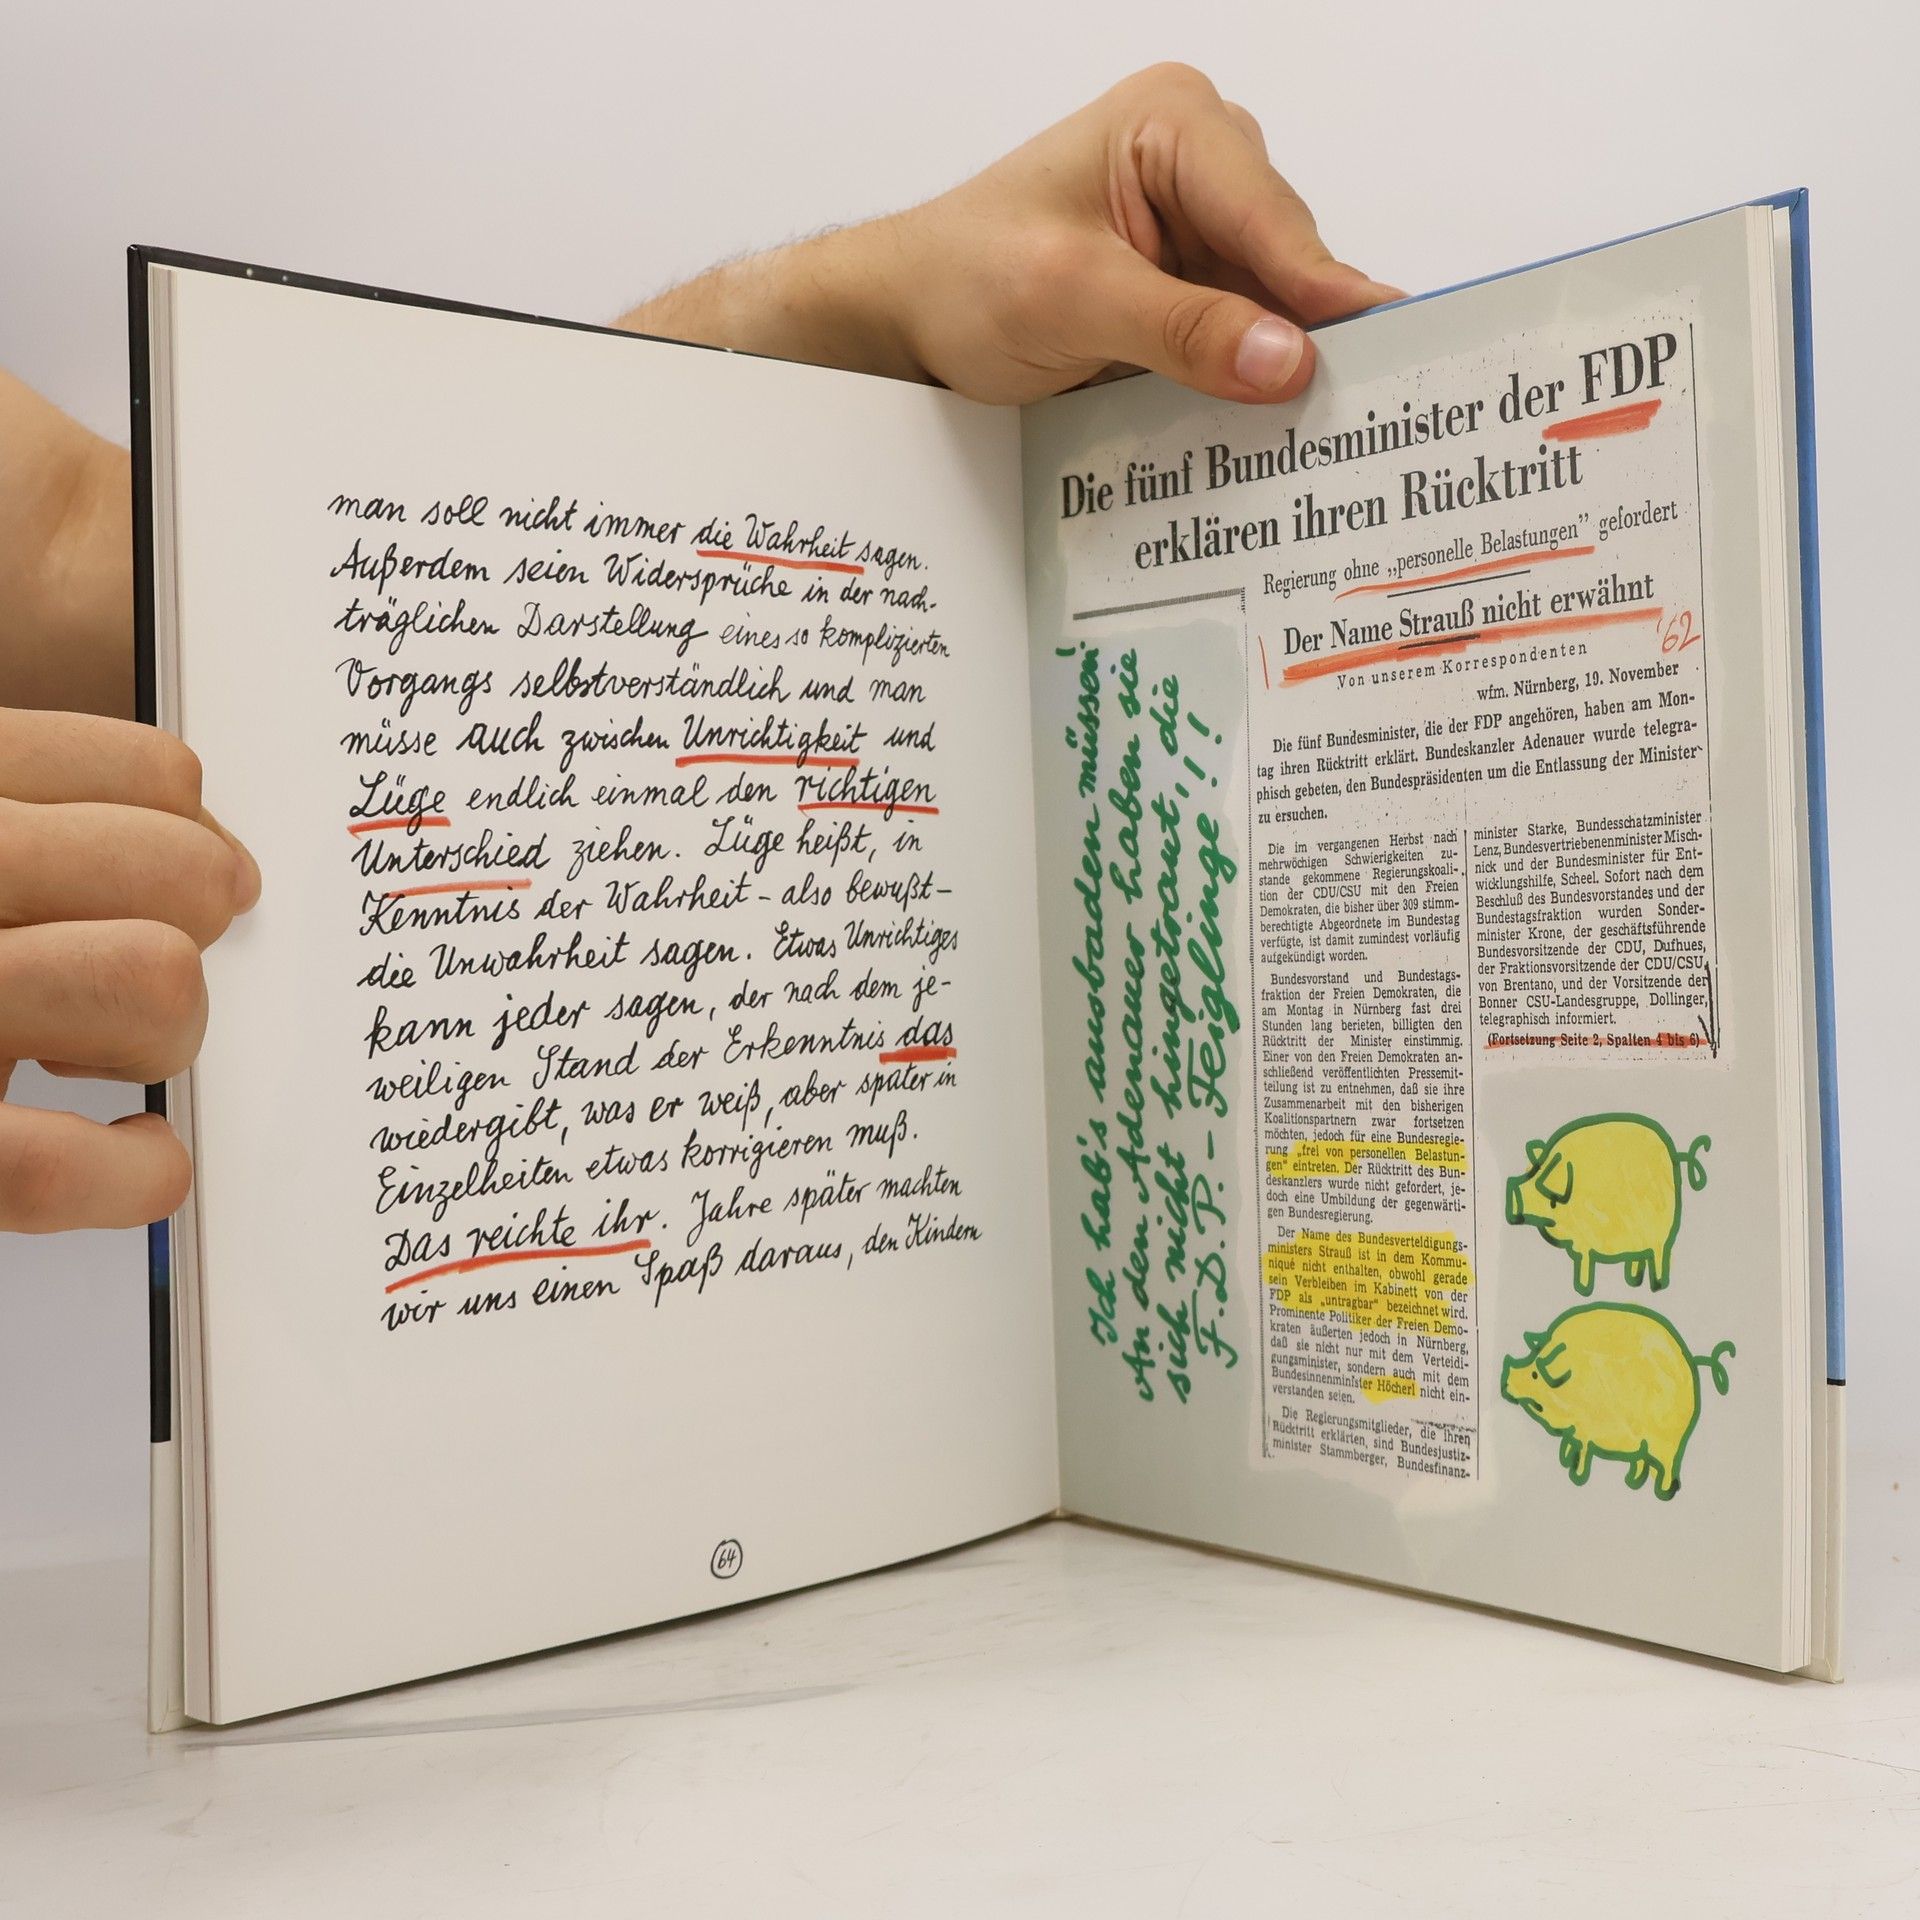 man soll nicht immer die Wahrheit sagen.
Außerdem seien Widersprüche in der nach-
träglichen Darstellung eines so komplizierten
Vorgangs selbstverständlich und man
müsse auch zwischen Unrichtigkeit und
Lüge endlich einmal den richtigen
Unterschied ziehen. Lüge heißt, in
Kenntnis der Wahrheit – also bewußt –
die Unwahrheit sagen. Etwas Unrichtiges
kann jeder sagen, der nach dem je-
weiligen Stand der Erkenntnis das
wiedergibt, was er weiß, aber später in
Einzelheiten etwas korrigieren muß.
Das reichte ihr. Jahre später machten
wir uns einen Spaß daraus, den Kindern
64
Die fünf Bundesminister der FDP
erklären ihren Rücktritt
Regierung ohne „personelle Belastungen” gefordert
Der Name Strauß nicht erwähnt
'62
Von unserem Korrespondenten
wfm. Nürnberg, 19. November
Die fünf Bundesminister, die der FDP angehören, haben am Mon-
tag ihren Rücktritt erklärt. Bundeskanzler Adenauer wurde telegra-
phisch gebeten, den Bundespräsidenten um die Entlassung der Minister
zu ersuchen.
Die im vergangenen Herbst nach
mehrwöchigen Schwierigkeiten zu-
stande gekommene Regierungskoali-
tion der CDU/CSU mit den Freien
Demokraten, die bisher über 309 stimm-
berechtigte Abgeordnete im Bundestag
verfügte, ist damit zumindest vorläufig
aufgekündigt worden.
Bundesvorstand und Bundestags-
fraktion der Freien Demokraten, die
am Montag in Nürnberg fast drei
Stunden lang berieten, billigten den
Rücktritt der Minister einstimmig.
Einer von den Freien Demokraten an-
schließend veröffentlichten Pressemit-
teilung ist zu entnehmen, daß sie ihre
Zusammenarbeit mit den bisherigen
Koalitionspartnern zwar fortsetzen
möchten, jedoch für eine Bundesregie-
rung „frei von personellen Belastun-
gen” eintreten. Der Rücktritt des Bun-
deskanzlers wurde nicht gefordert, je-
doch eine Umbildung der gegenwärti-
gen Bundesregierung.
Der Name des Bundesverteidigungs-
ministers Strauß ist in dem Kommu-
niqué nicht enthalten, obwohl gerade
sein Verbleiben im Kabinett von der
FDP als „untragbar” bezeichnet wird.
Prominente Politiker der Freien Demo-
kraten äußerten jedoch in Nürnberg,
daß sie nicht nur mit dem Verteidi-
gungsminister, sondern auch mit dem
Bundesinnenminister Höcherl nicht ein-
verstanden seien.
Die Regierungsmitglieder, die ihren
Rücktritt erklärten, sind Bundesjustiz-
minister Stammberger, Bundesfinanz-
minister Starke, Bundesschatzminister
Lenz, Bundesvertriebenenminister Misch-
nick und der Bundesminister für Ent-
wicklungshilfe, Scheel. Sofort nach dem
Beschluß des Bundesvorstandes und der
Bundestagsfraktion wurden Sonder-
minister Krone, der geschäftsführende
Bundesvorsitzende der CDU, Dufhues,
der Fraktionsvorsitzende der CDU/CSU,
von Brentano, und der Vorsitzende der
Bonner CSU-Landesgruppe, Dollinger,
telegraphisch informiert.
(Fortsetzung Seite 2, Spalten 4 bis 6)
Ich hab's ausbaden müssen!
An den Adenauer haben sie
sich nicht hingetraut, die
F.D.P.-Feiglinge!!